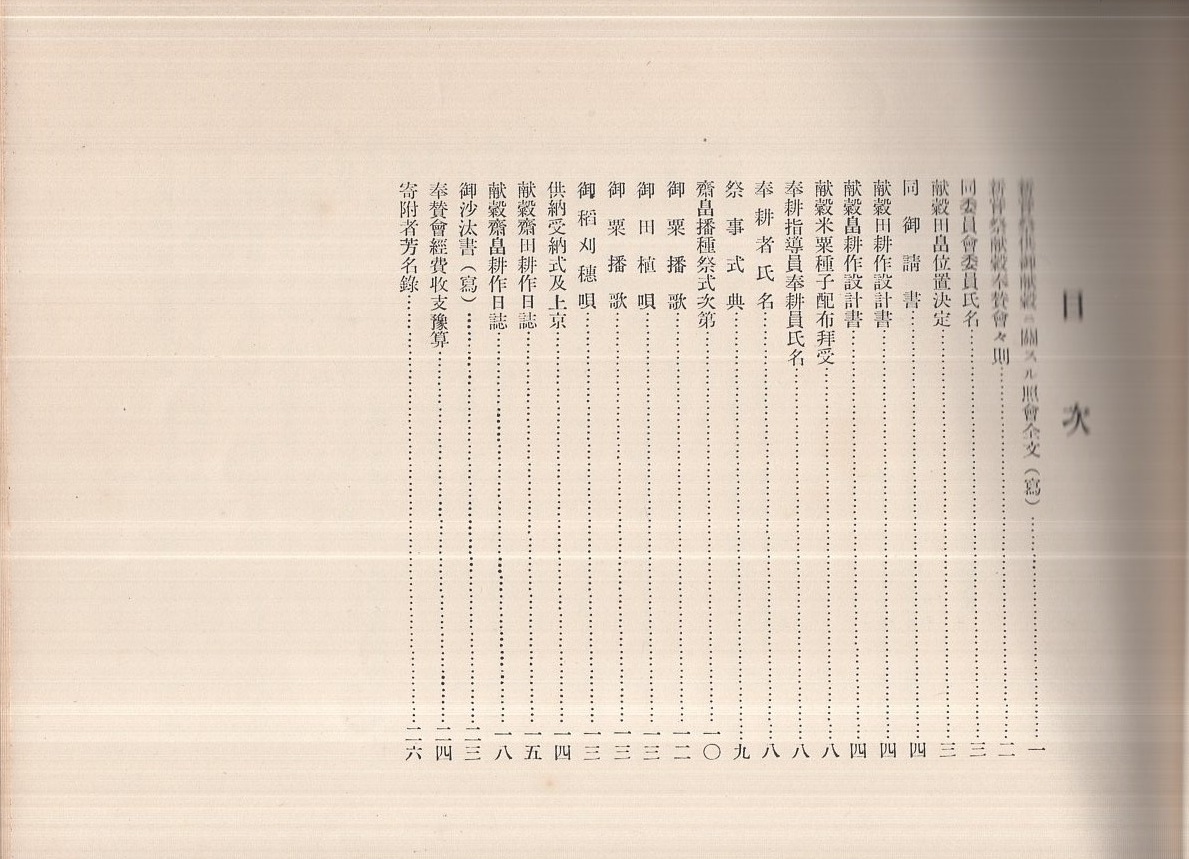 目次
新嘗祭供御献穀ニ關スル照會全文（寫）……一
新嘗祭献穀奉賛會々則……二
同委員會委員氏名……三
献穀田畠位置決定……三
同御請書……四
献穀田耕作設計書……四
献穀畠耕作設計書……四
献穀米粟種子配布拜受……八
奉耕指導員奉耕員氏名……八
奉耕者氏名……八
祭事式典……九
齋畠播種祭式次第……一〇
御粟播歌……一二
御田植唄……一三
御粟播歌……一三
御稻刈穗唄……一三
供納受納式及上京……一四
献穀齋田耕作日誌……一五
献穀齋畠耕作日誌……一八
御沙汰書（寫）……二三
奉賛會經費收支豫算……二四
寄附者芳名錄……二六